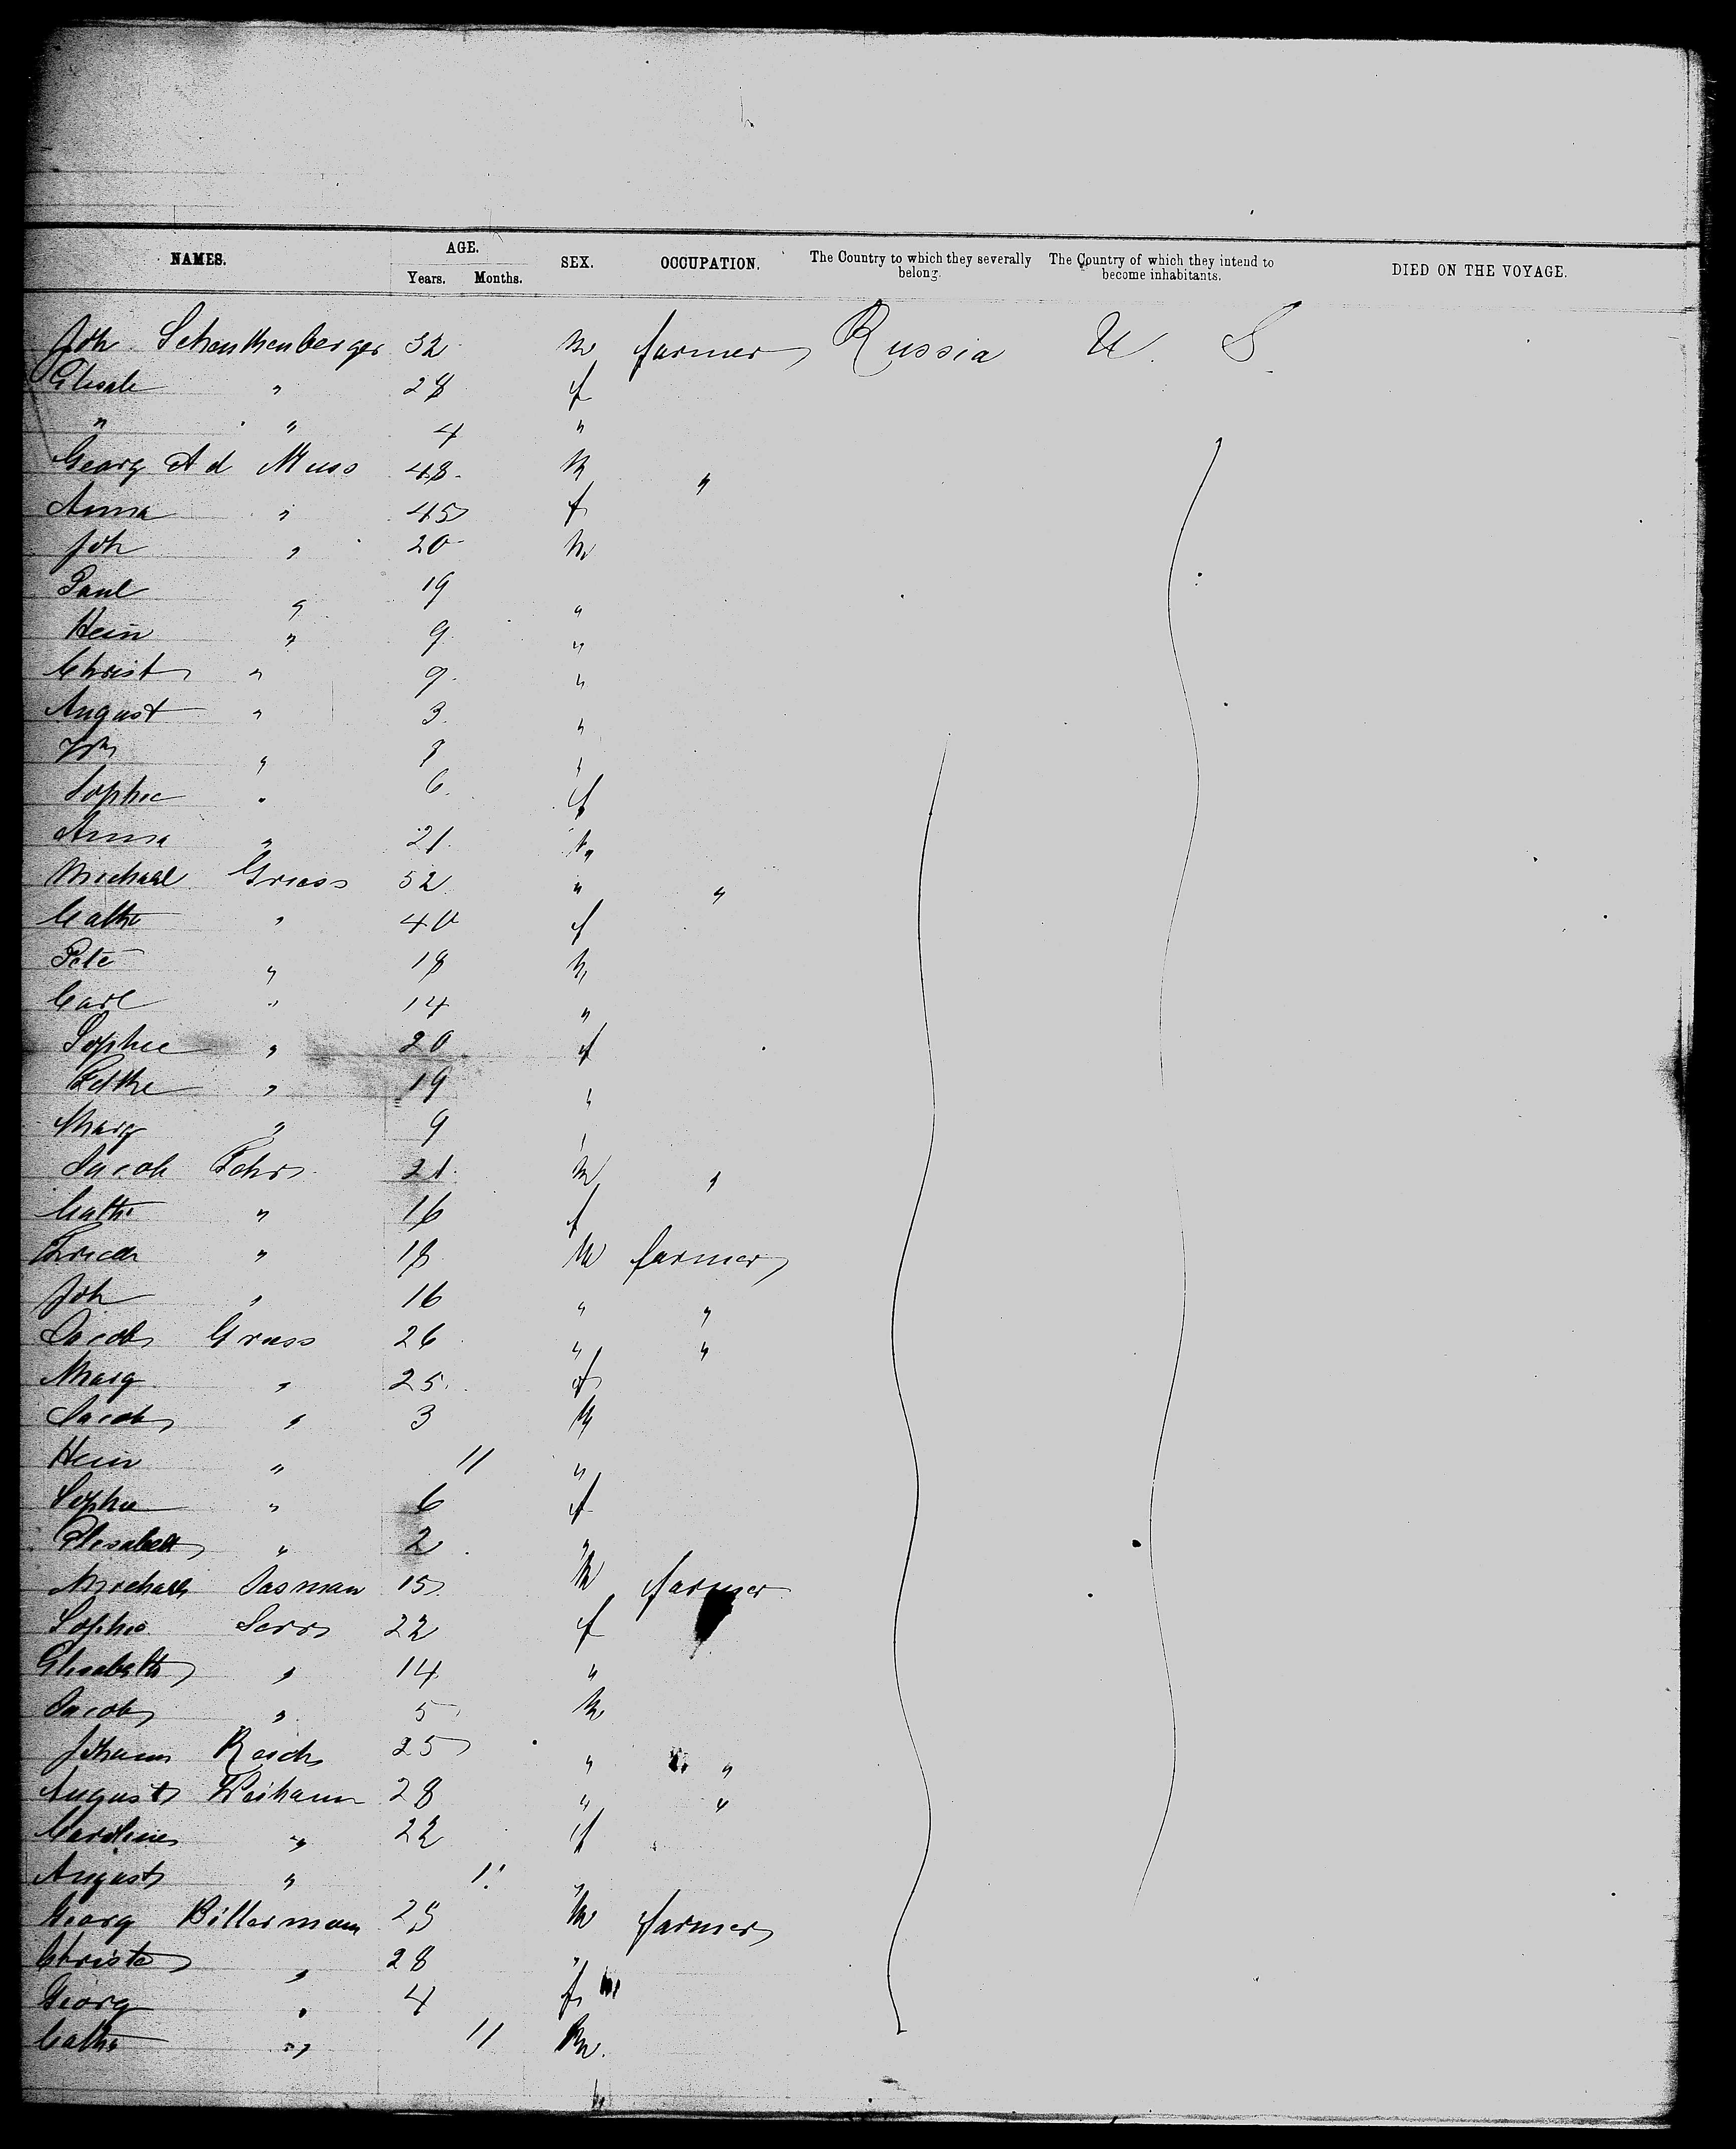 NAMES. AGE. Years. Months. SEX. OCCUPATION. The Country to which they severally belong. The Country of which they intend to become inhabitants. DIED ON THE VOYAGE.
Joh 32 m farmer Russia U. S.
" 28 f
" " 4 "
Georg Ad Muss 48 m "
Anna " 45 f
Joh " 20 m
Paul " 19 "
Hein " 9 "
Christ " 9 "
August " 3 "
" 8 "
Sophie " 6 f
Anna " 21
Michael Griess 52 " "
Cath " 40 f
Pete " 18 m
Carl " 14 "
Sophie " 20 f
" 19 "
Marg " 9 "
Jacob Fehr 21 m "
Cath " 16 f
Friedr " 18 m farmer
Joh " 16 " "
Jacob Gruss 26 " "
Marg " 25 f
Jacob " 3 m
Hein " 11 "
Sophie " 6 f
Elisabeth " 2 "
Michael Sasman 15 m farmer
Sophie Serr 22 f
Elisabeth " 14 "
Jacob " 5 m
Johann Reich 25 " "
August 28 " "
Caroline " 22 f
August " 11 "
Georg Billermann 28 m farmer
Christ " 28 "
Georg " 4 f m
Cath " 11 m